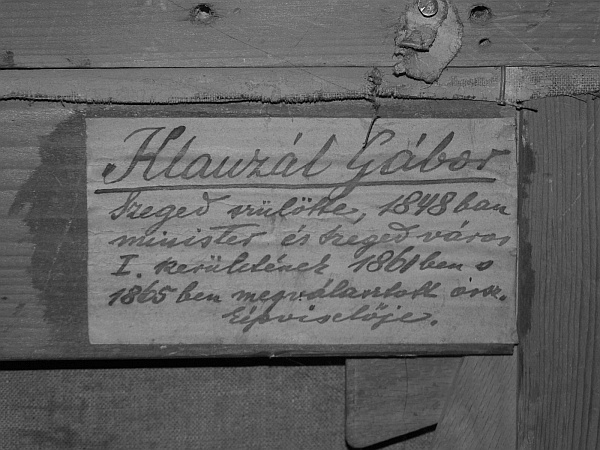 Klauzál Gábor
Szeged szülötte, 1848 ban
minister és Szeged város
I. kerületének 1861 ben s
1865 ben megválasztott orsz.
képviselője.